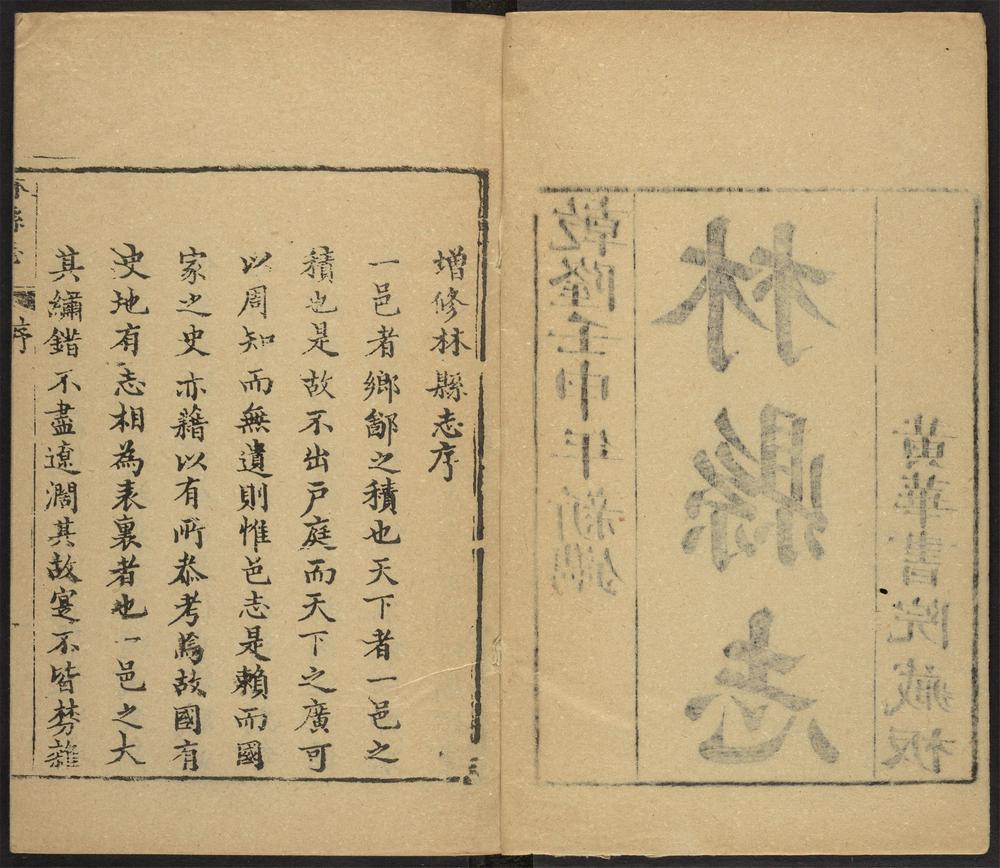 黃華書院藏板
林縣志
乾隆壬申年新鐫
增修林縣志序
一邑者鄉鄙之積也天下者一邑之
積也是故不出户庭而天下之廣可
以周知而無遺則惟邑志是賴而國
家之史亦藉以有所叅考焉故國有
史地有志相為表裏者也一邑之大
其繡錯不盡遼濶其故寔不皆棼雜
林縣志 序